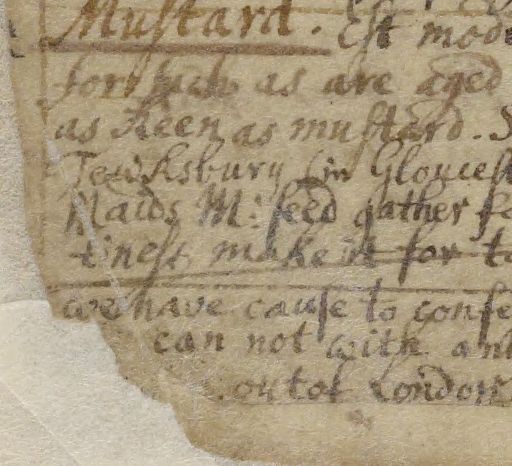 Mustard. Est mod
for such as are aged
as Keen as mustard. S
Tewksbury (in Gloucest
Maids M: seed gather fe
tinest make it for to
we have cause to confe
can not with an
out of London